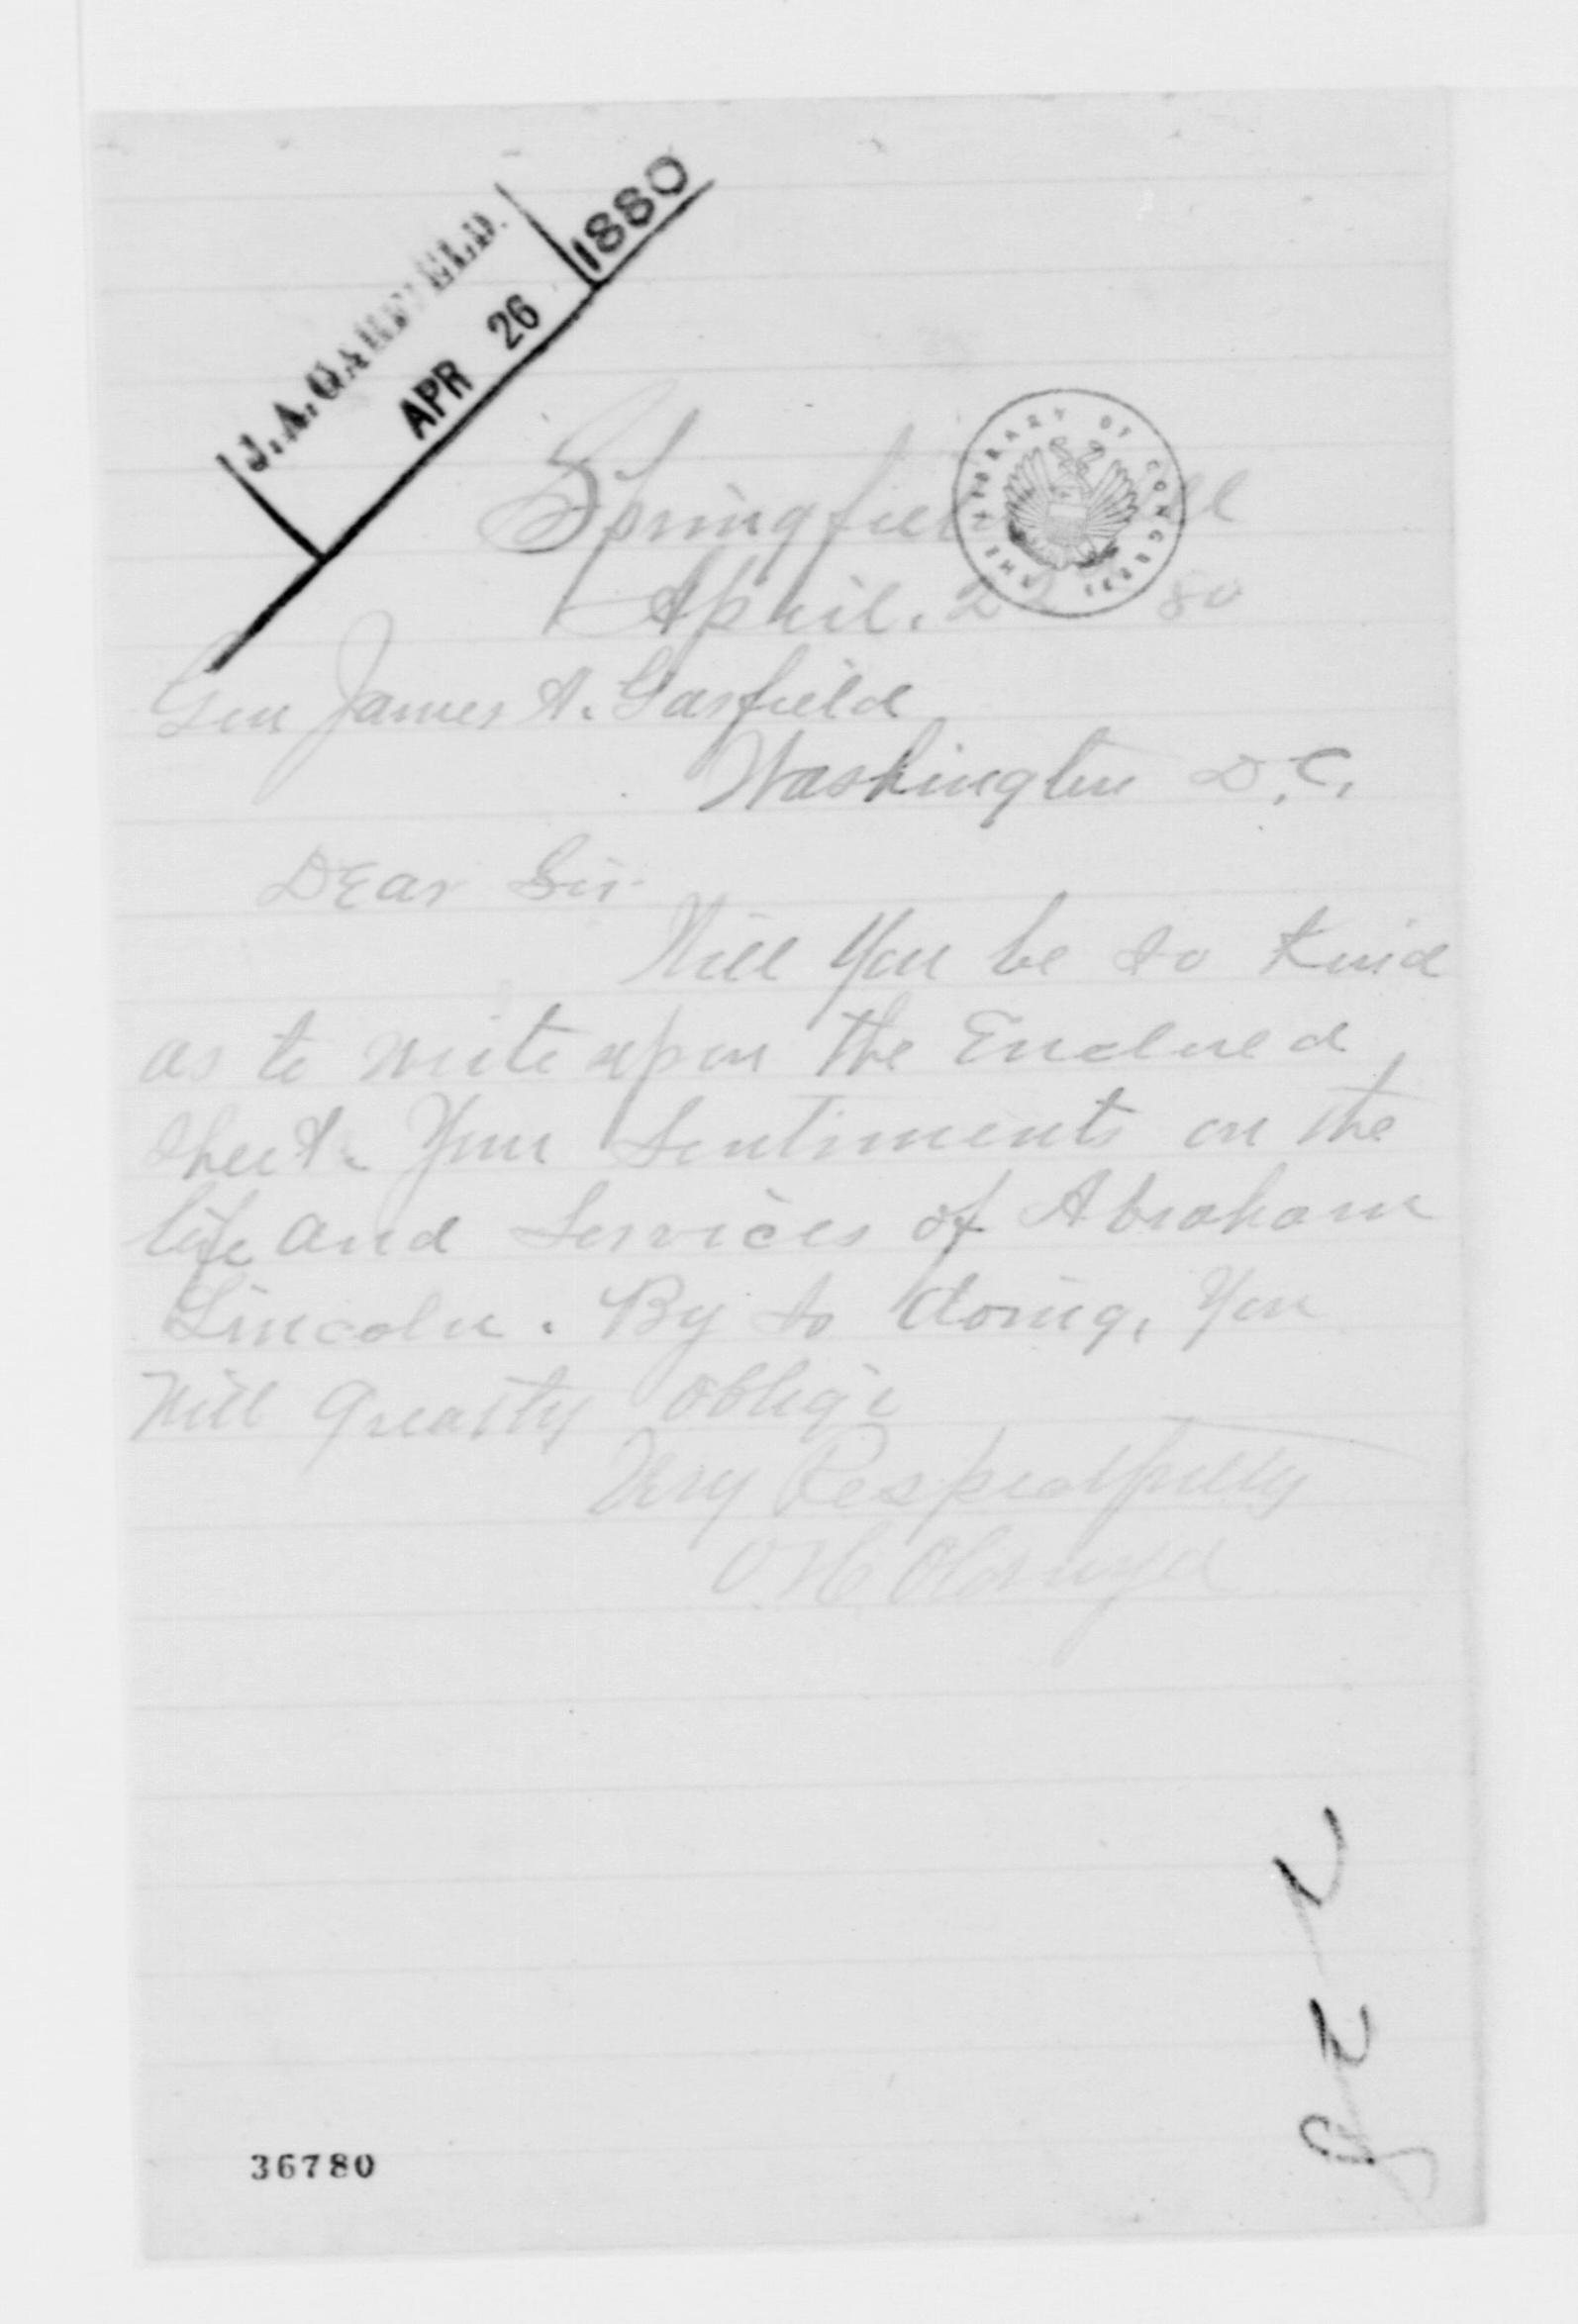 J.A. GARFIELD.
APR 26 1880
THE LIBRARY OF CONGRESS
Springfield Ill
April. 22 80
Gen James A. Garfield
Washington D.C.
DEar Sir.
Will you be so Kind
as to write upon the Enclosed
sheet. Your Sentiments on the
life and Services of Abraham
Lincoln. By so doing, you
Will Greatly oblige
Very Respectfully
O. H. Oldroyd
36780